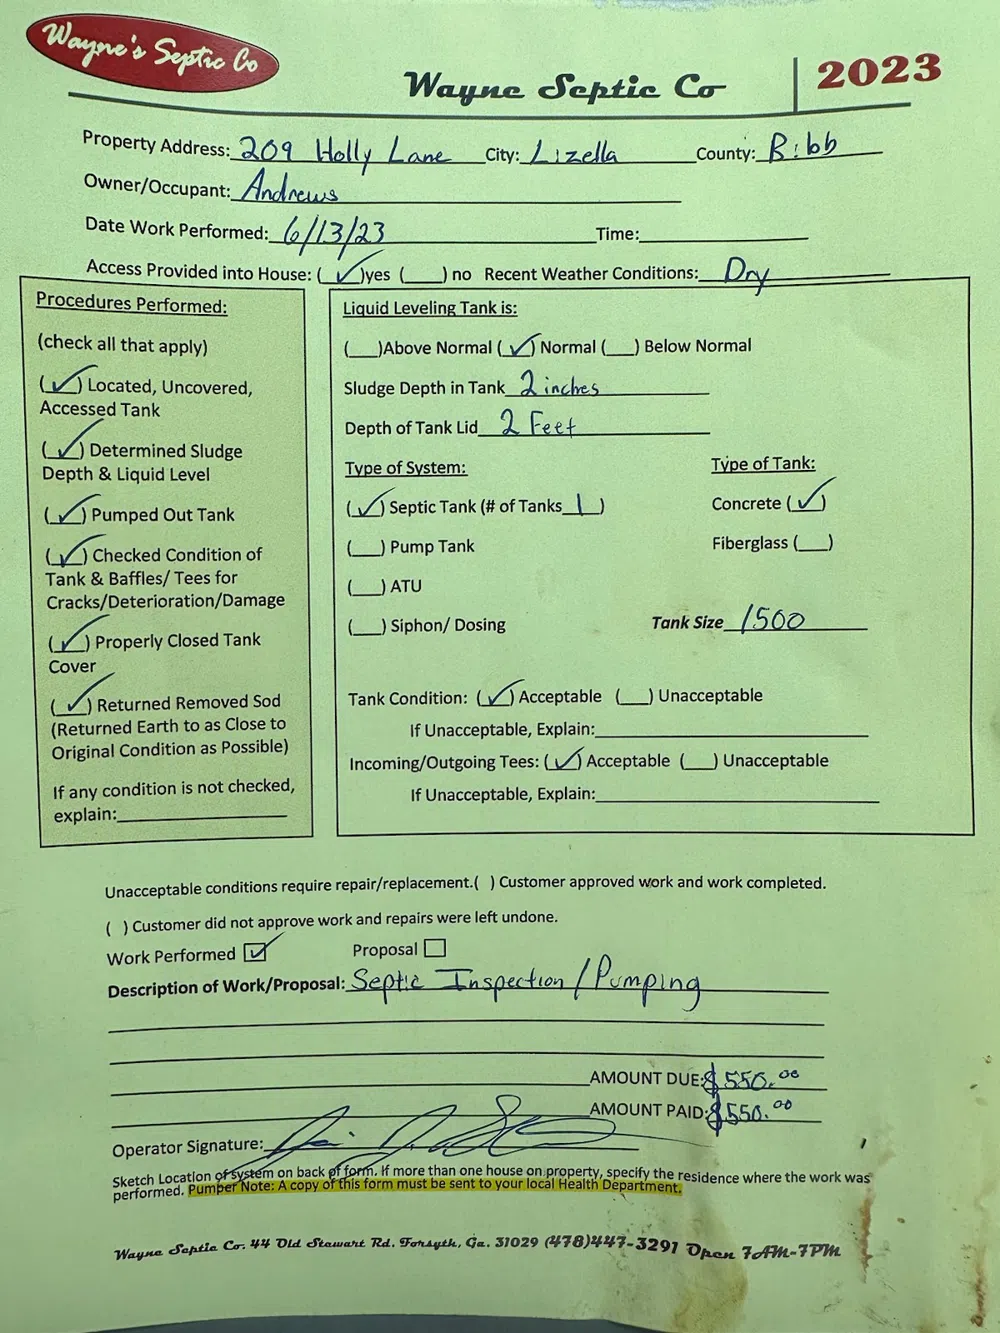 Wayne's Septic Co
Wayne Septic Co | 2023
Property Address: 209 Holly Lane City: Lizella County: Bibb
Owner/Occupant: Andrews
Date Work Performed: 6/13/23 Time:
Access Provided into House: (✓) yes (__) no Recent Weather Conditions: Dry
Procedures Performed:
(check all that apply)
(✓) Located, Uncovered,
Accessed Tank
(✓) Determined Sludge
Depth & Liquid Level
(✓) Pumped Out Tank
(✓) Checked Condition of
Tank & Baffles/ Tees for
Cracks/Deterioration/Damage
(✓) Properly Closed Tank
Cover
(✓) Returned Removed Sod
(Returned Earth to as Close to
Original Condition as Possible)
If any condition is not checked,
explain:
Liquid Leveling Tank is:
(__)Above Normal (✓) Normal (__) Below Normal
Sludge Depth in Tank 2 inches
Depth of Tank Lid 2 Feet
Type of System: Type of Tank:
(✓) Septic Tank (# of Tanks 1 ) Concrete (✓)
(__) Pump Tank Fiberglass (__)
(__) ATU
(__) Siphon/ Dosing Tank Size 1500
Tank Condition: (✓) Acceptable (__) Unacceptable
If Unacceptable, Explain:
Incoming/Outgoing Tees: (✓) Acceptable (__) Unacceptable
If Unacceptable, Explain:
Unacceptable conditions require repair/replacement.( ) Customer approved work and work completed.
( ) Customer did not approve work and repairs were left undone.
Work Performed ☑ Proposal ☐
Description of Work/Proposal: Septic Inspection / Pumping
AMOUNT DUE: $550.00
AMOUNT PAID: $550.00
Operator Signature:
Sketch Location of system on back of form. If more than one house on property, specify the residence where the work was
performed. Pumper Note: A copy of this form must be sent to your local Health Department.
Wayne Septic Co. 44 Old Stewart Rd. Forsyth, Ga. 31029 (478)447-3291 Open 7AM-7PM